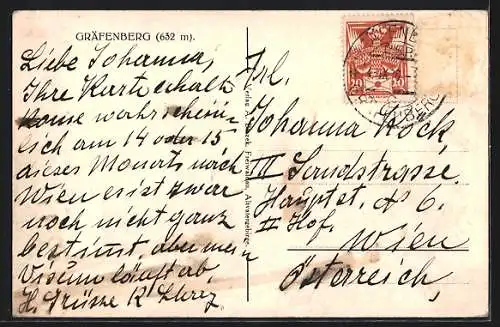 GRÄFENBERG (632 m).
Liebe Johanna,
Ihre Karte erhalt
komme wahrschein
lich am 14 oder 15
dieses Monats nach
Wien es ist zwar
noch nicht ganz
bestimt, aber mein
Visum läuft ab,
H. Grüsse K
Verlag A. Freiwaldau, Altvatergebirge.
20 20
Frl.
Johanna Kock
III Landstrasse
Hauptst. № 6.
II Hof.
Wien
Österreich,